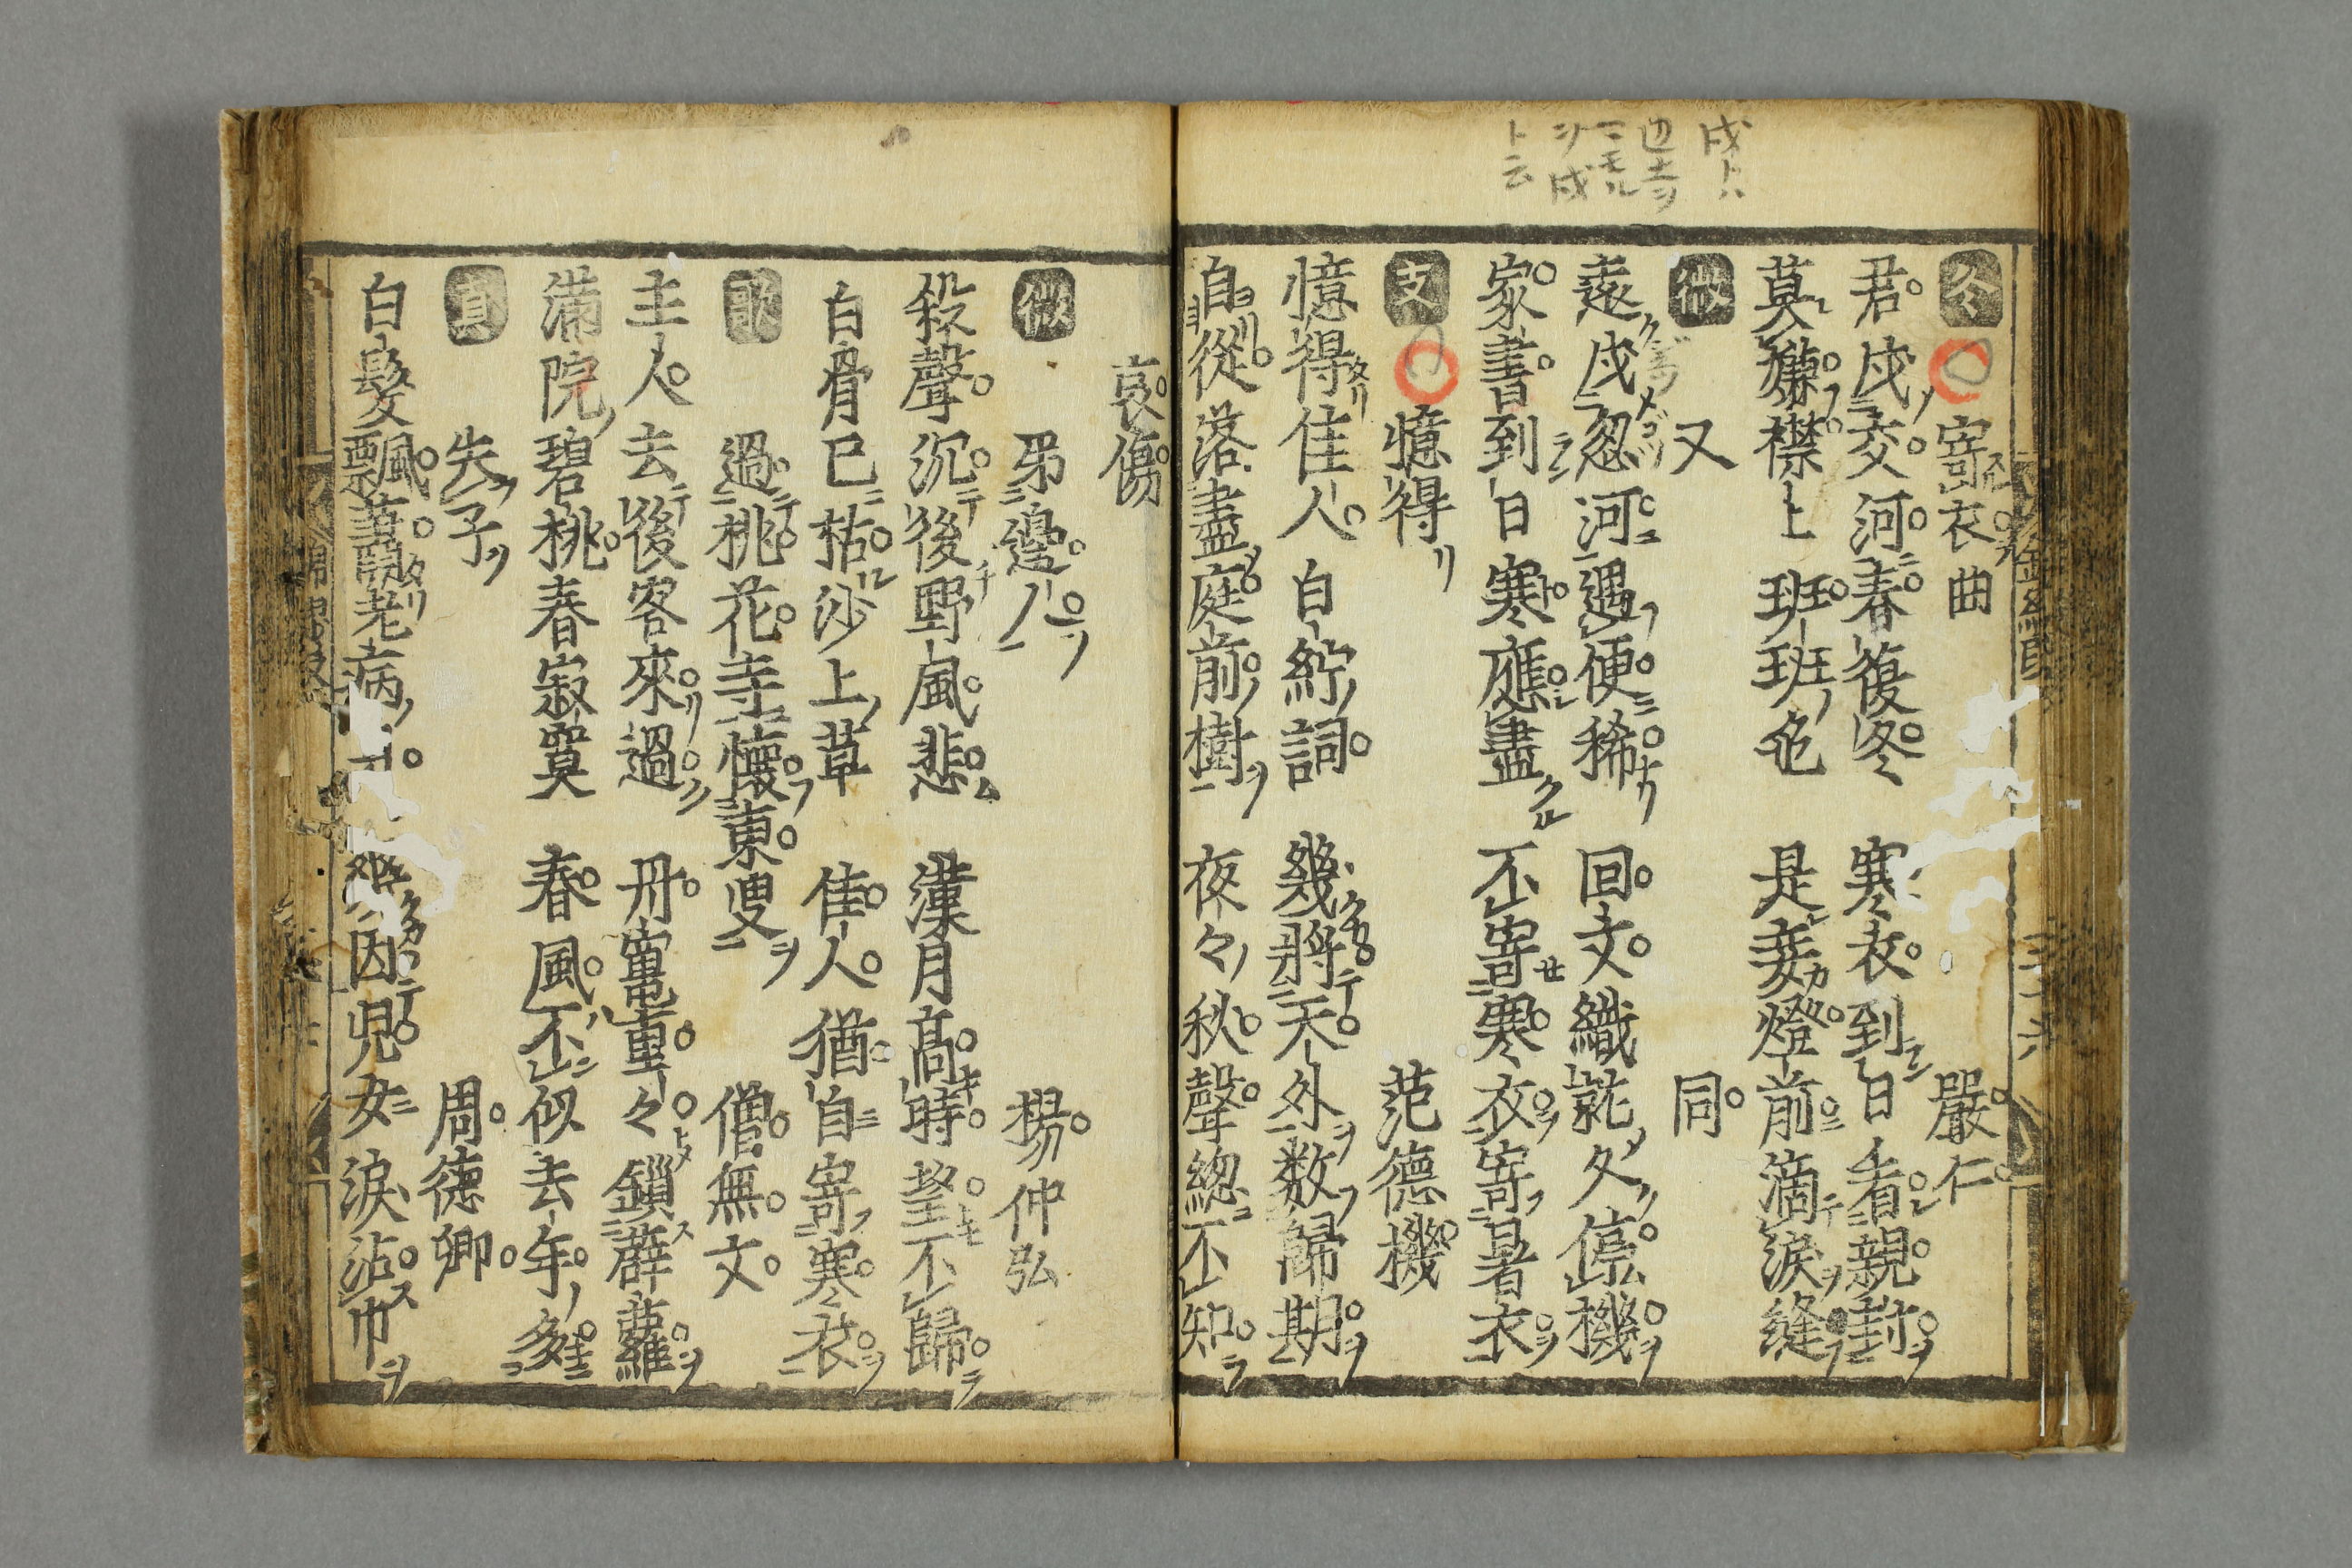 戍トハ
辺土ヲ
マモル
ヲ戍
ト云
冬 寄衣曲 嚴仁
君戍交河春復冬 寒衣到日看親封
莫嫌襟上班班色 是妾燈前滴淚縫
微 又 同
遠戍忽河遇便稀 回文織就久停機
家書到日寒應盡 不寄寒衣寄暑衣
支 憶得 范德機
憶得佳人白紵詞 幾將天外数歸期
自從落盡庭前樹 夜々秋聲總不知
哀傷
微 吊邊人 楊仲弘
殺聲沉後野風悲 漢月髙時望不歸
白骨已枯沙上草 佳人猶自寄寒衣
歌 過桃花寺懷東叟 僧無文
主人去後客來過 丹竃重々鎖薜蘿
滿院碧桃春寂寞 春風不似去年多
真 失子 周德卿
白髮飄蕭老病 因兒女淚沾巾